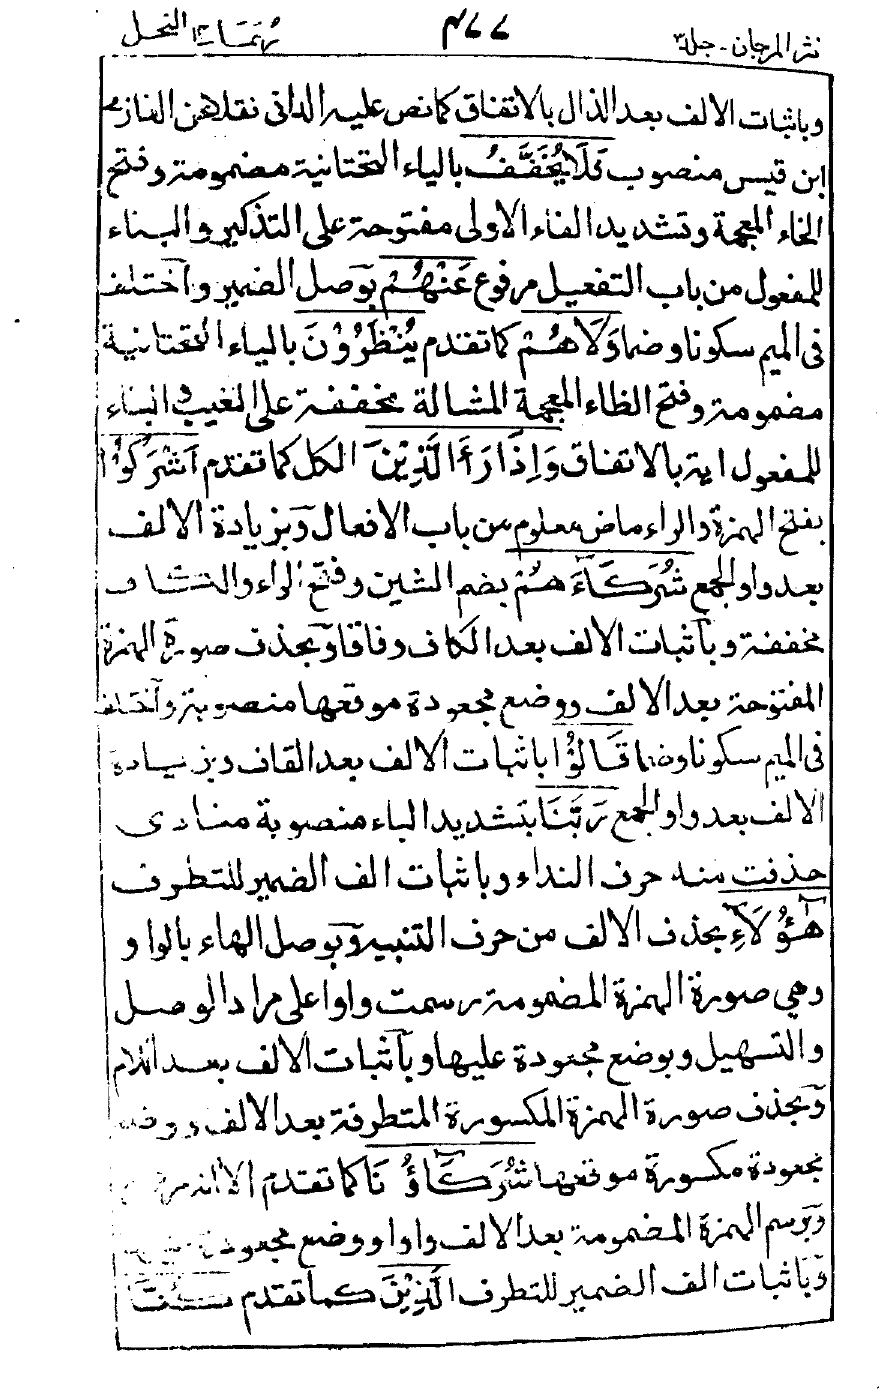 نثر المرجان - جلد ٣ ٤٧٧ ربما ١٤ النحل
وباثبات الالف بعد الذال بالاتفاق كما نص عليه الدانى نقلا عن الغازى
ابن قيس منصوب فَلَا يُخَفَّفُ بالياء التحتانية مضمومة وفتح
الخاء المعجمة وتشديد الفاء الاولى مفتوحة على التذكير والبناء
للمفعول من باب التفعيل مرفوع عَنْهُمْ بوصل الضمير واختلف
فى الميم سكونا وضما وَلَا هُمْ كما تقدم يُنْظَرُوْنَ بالياء التحتانية
مضمومة وفتح الظاء المعجمة المشالة مخففة على الغيب والبناء
للمفعول اية بالاتفاق وَاِذَا رَءَا الَّذِيْنَ الكل كما تقدم اَشْرَكُوْا
بفتح الهمزة والراء ماض معلوم من باب الافعال وبزيادة الالف
بعد واو الجمع شُرَكَآءَ هُمْ بضم الشين وفتح الراء والكاف
مخففة وباثبات الالف بعد الكاف وفاقا وبحذف صورة الهمزة
المفتوحة بعد الالف ووضع مجعودة موقعها منصوبة واختلف
فى الميم سكونا وضما قَالُوْا باثبات الالف بعد القاف وبزيادة
الالف بعد واو الجمع رَبَّنَا بتشديد الباء منصوبة منادى
حذفت منه حرف النداء وباثبات الف الضمير للتطرف
هٰٓؤُلَآءِ بحذف الالف من حرف التنبيه وبوصل الهاء بالواو
وهي صورة الهمزة المضمومة رسمت واوا على مراد الوصل
والتسهيل وبوضع مجعودة عليها وباثبات الالف بعد اللام
وبحذف صورة الهمزة المكسورة المتطرفة بعد الالف ووضع
مجعودة مكسورة موقعها شُرَكَآؤُ نَا كما تقدم الا انه
وبرسم الهمزة المضمومة بعد الالف واوا ووضع مجعودة
وباثبات الف الضمير للتطرف الَّذِيْنَ كما تقدم